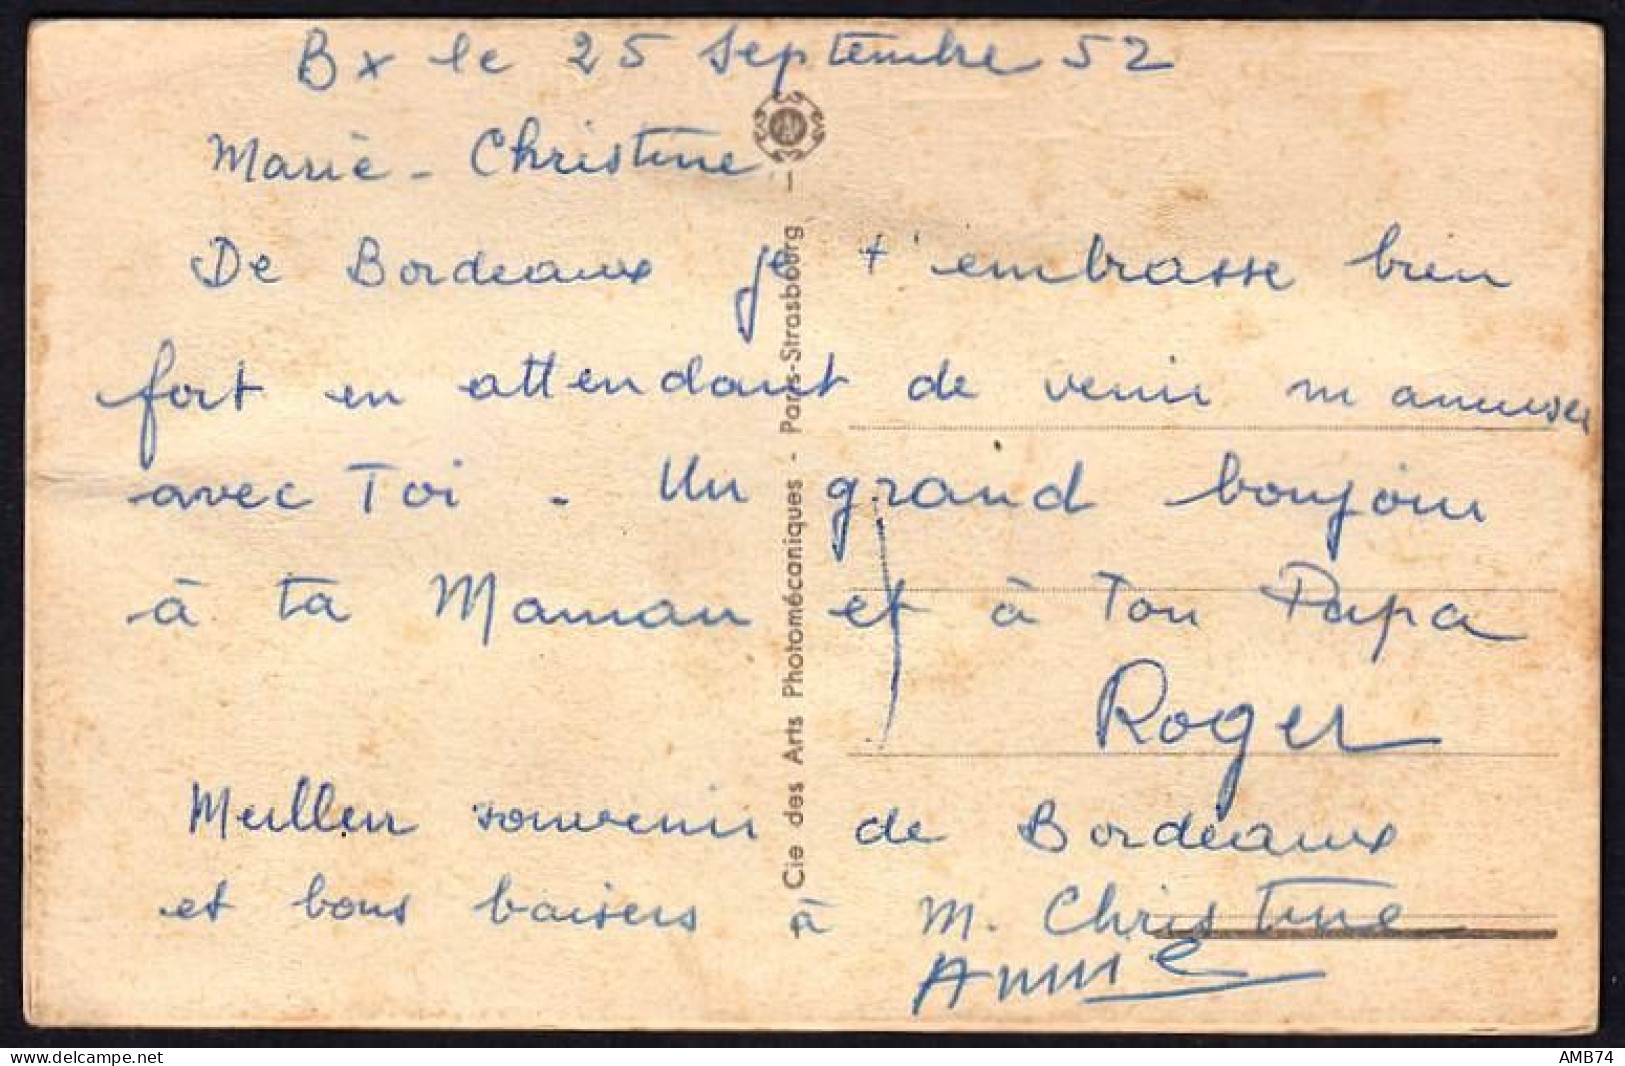 Bx le 25 Septembre 52
Marie - Christine
De Bordeaux je t'embrasse bien
fort en attendant de venir m'amuser
avec Toi - Un grand bonjour
à ta Maman et à Ton Papa
Roger
Meilleur souvenir de Bordeaux
et bons baisers à M. Christine
Annie
Cie des Arts Photomécaniques - Paris-Strasbourg -
AMB74
https://www.delcampe.net